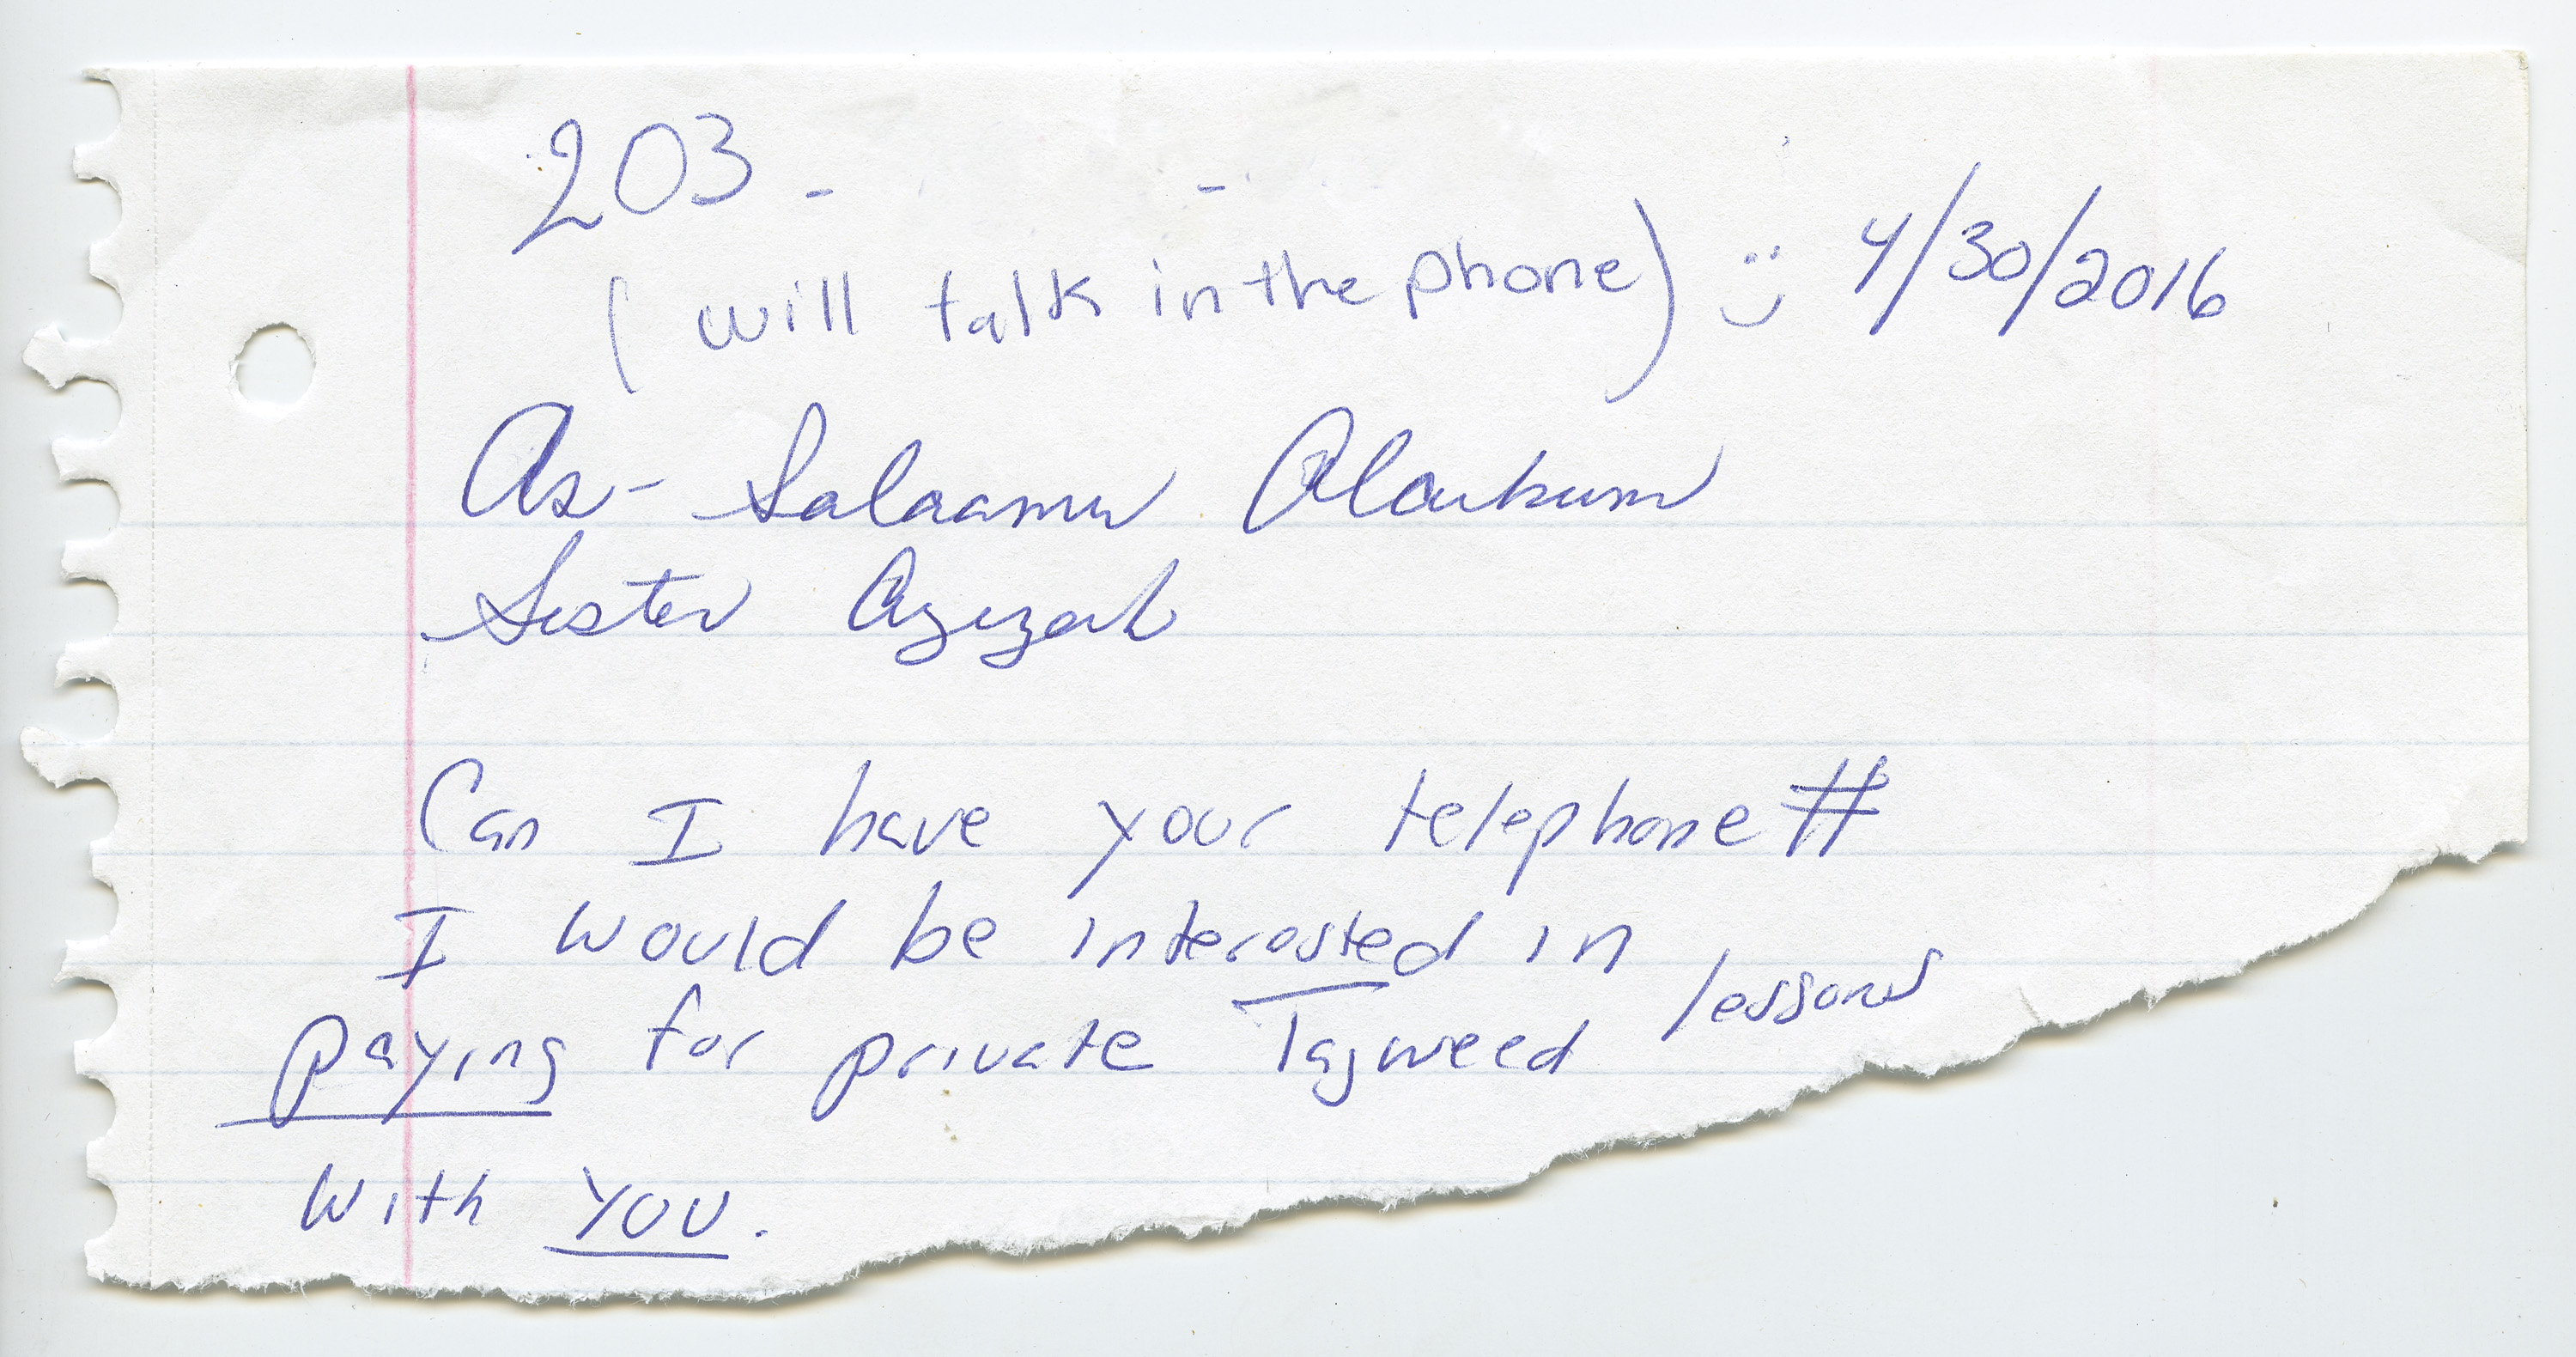 203 -          -
( will talk in the phone) :) 4/30/2016
As-Salaamu Alaikum
Sister Azizah
Can I have your telephone #
I would be interested in
paying for private Tajweed lessons
with YOU.